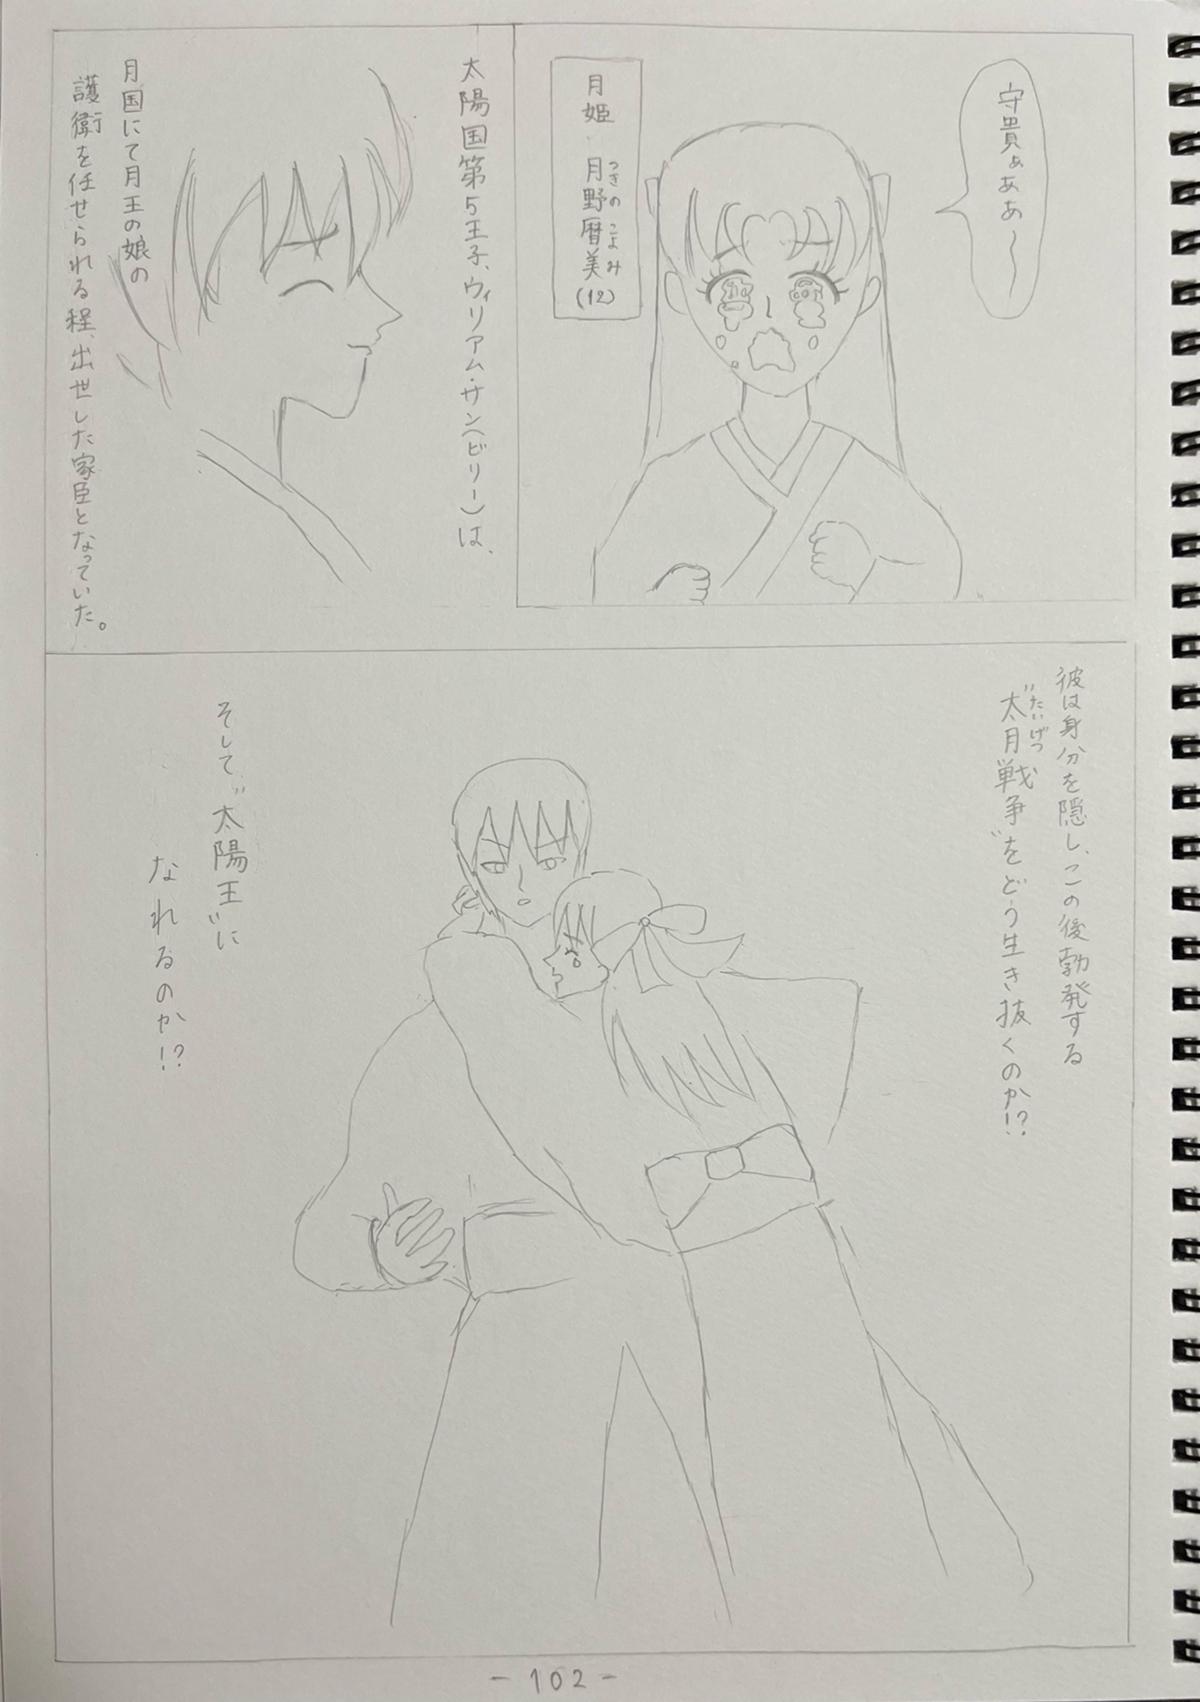 守貴ぁああ〜
月姫 月野暦美(12)
つきの こよみ
太陽国第5王子、ウィリアム・サン(ビリー)は、
月国にて月王の娘の
護衛を任せられる程、出世した家臣となっていた。
彼は身分を隠し、この後勃発する
"太月戦争"をどう生き抜くのか!?
たいげつ
そして、"太陽王"に
なれるのか!?
-102-